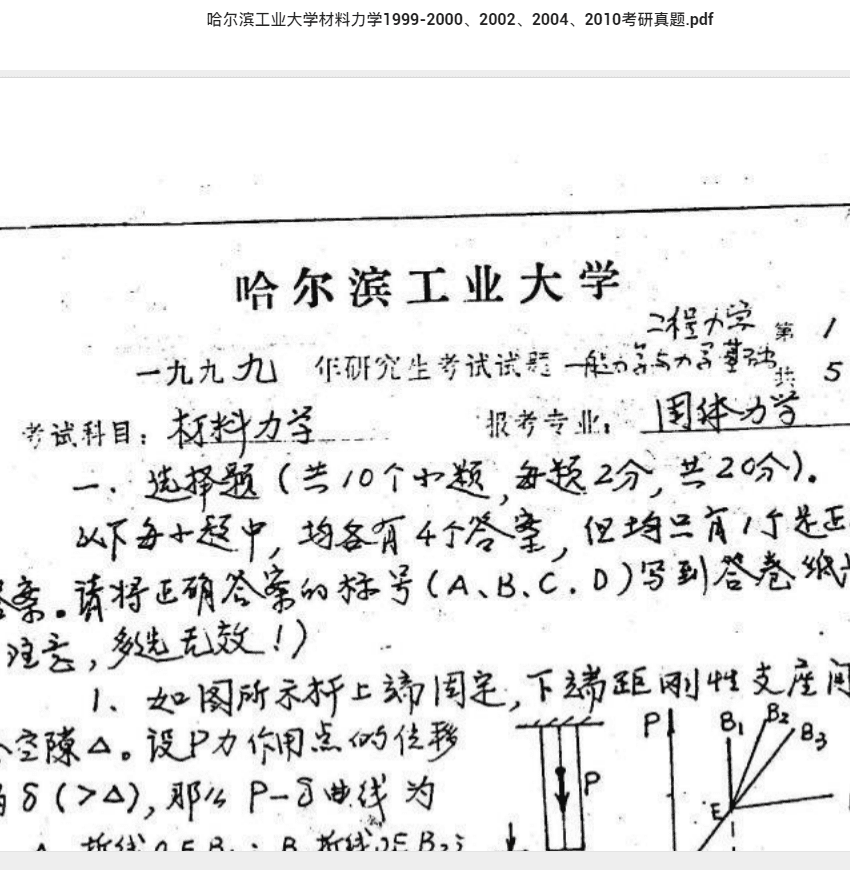 哈尔滨工业大学材料力学1999-2000、2002、2004、2010考研真题.pdf
哈尔滨工业大学
工程力学 第 1
一九九九 年研究生考试试题 一般力学与力学基础 共 5
考试科目：材料力学 报考专业：固体力学
一．选择题（共10个小题，每题2分，共20分）。
以下每小题中，均各有4个答案，但均只有1个是正
答案。请将正确答案的标号（A、B、C．D）写到答卷纸
注意，多选无效！）
1、如图所示杆上端固定，下端距刚性支座间
空隙△。设P力作用点的位移
为δ（>△），那么P-δ曲线为
A 折线OEB₁； B 折线OEB₂；
P
P
B₁
B₂
B₃
E